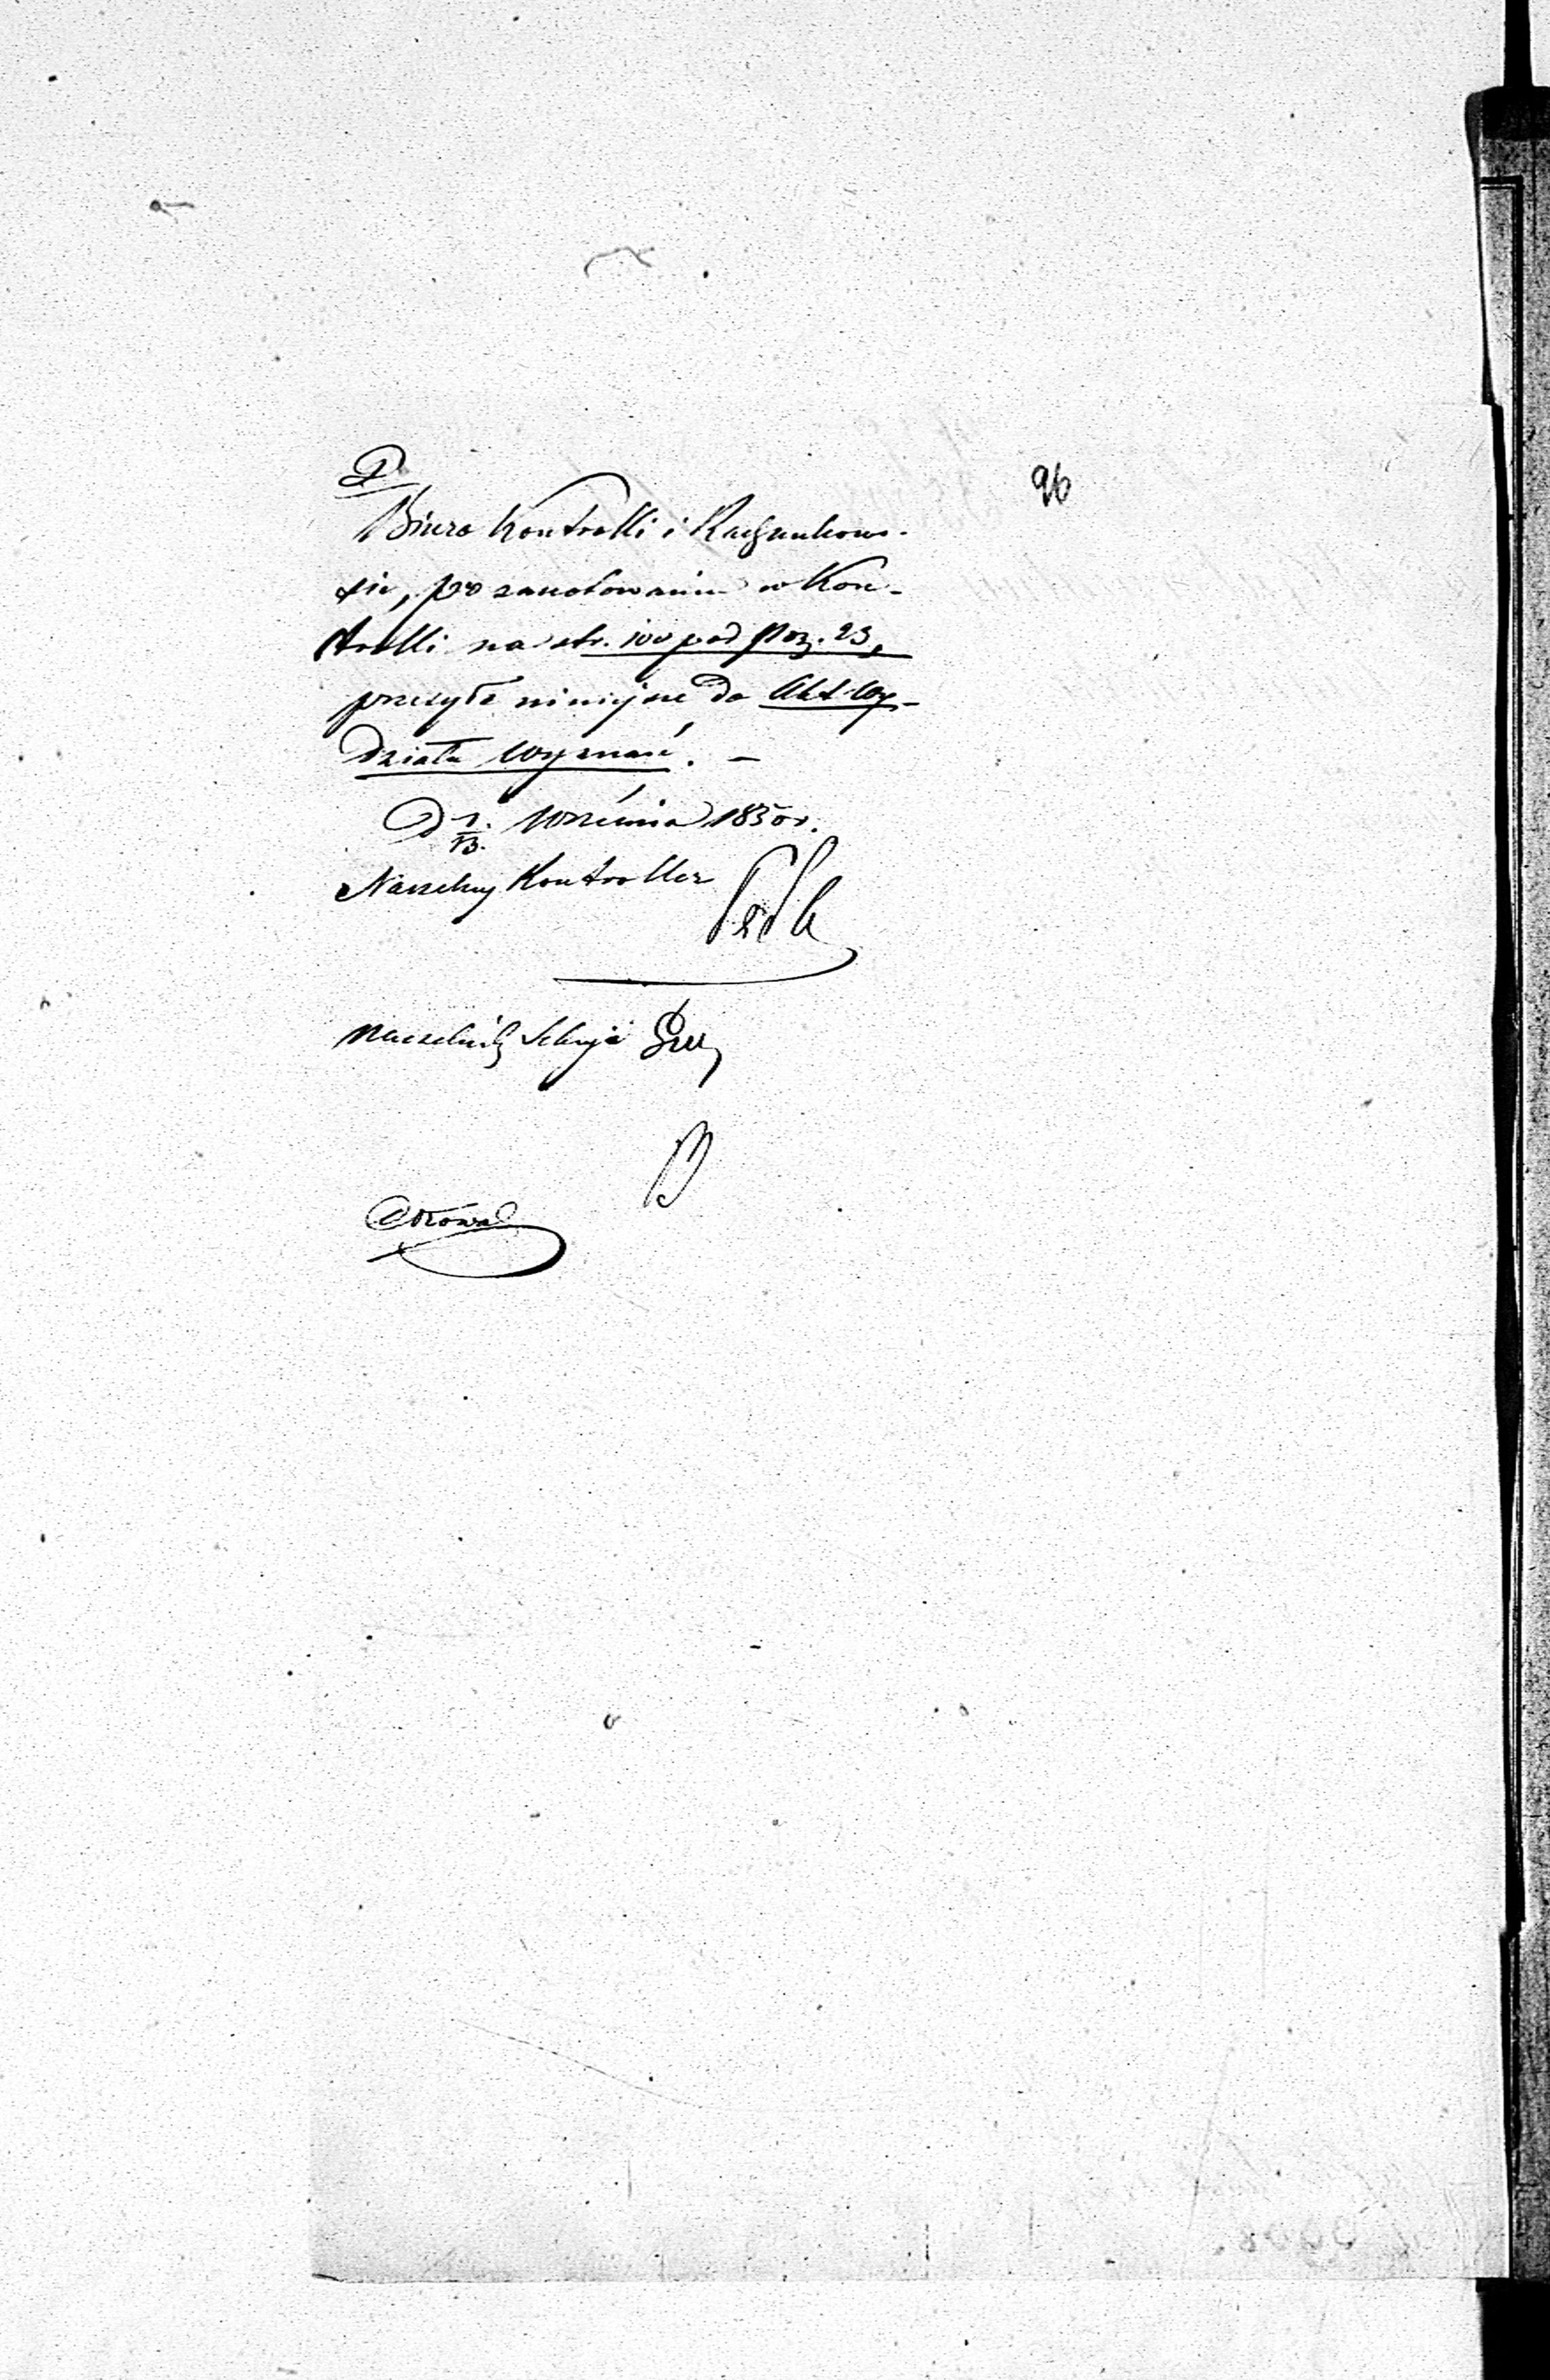 96
Biuro Kontrolli i Rachunkowo-
ści, po zanotowaniu w Kon-
trolli na str. 100 pod Poz. 23,
przesyła niniejsze do Akt Wy-
działu Wyznań. —
D 1/13. Września 1850 r.
Naczelny Kontroller
Naczelnik Sekcji